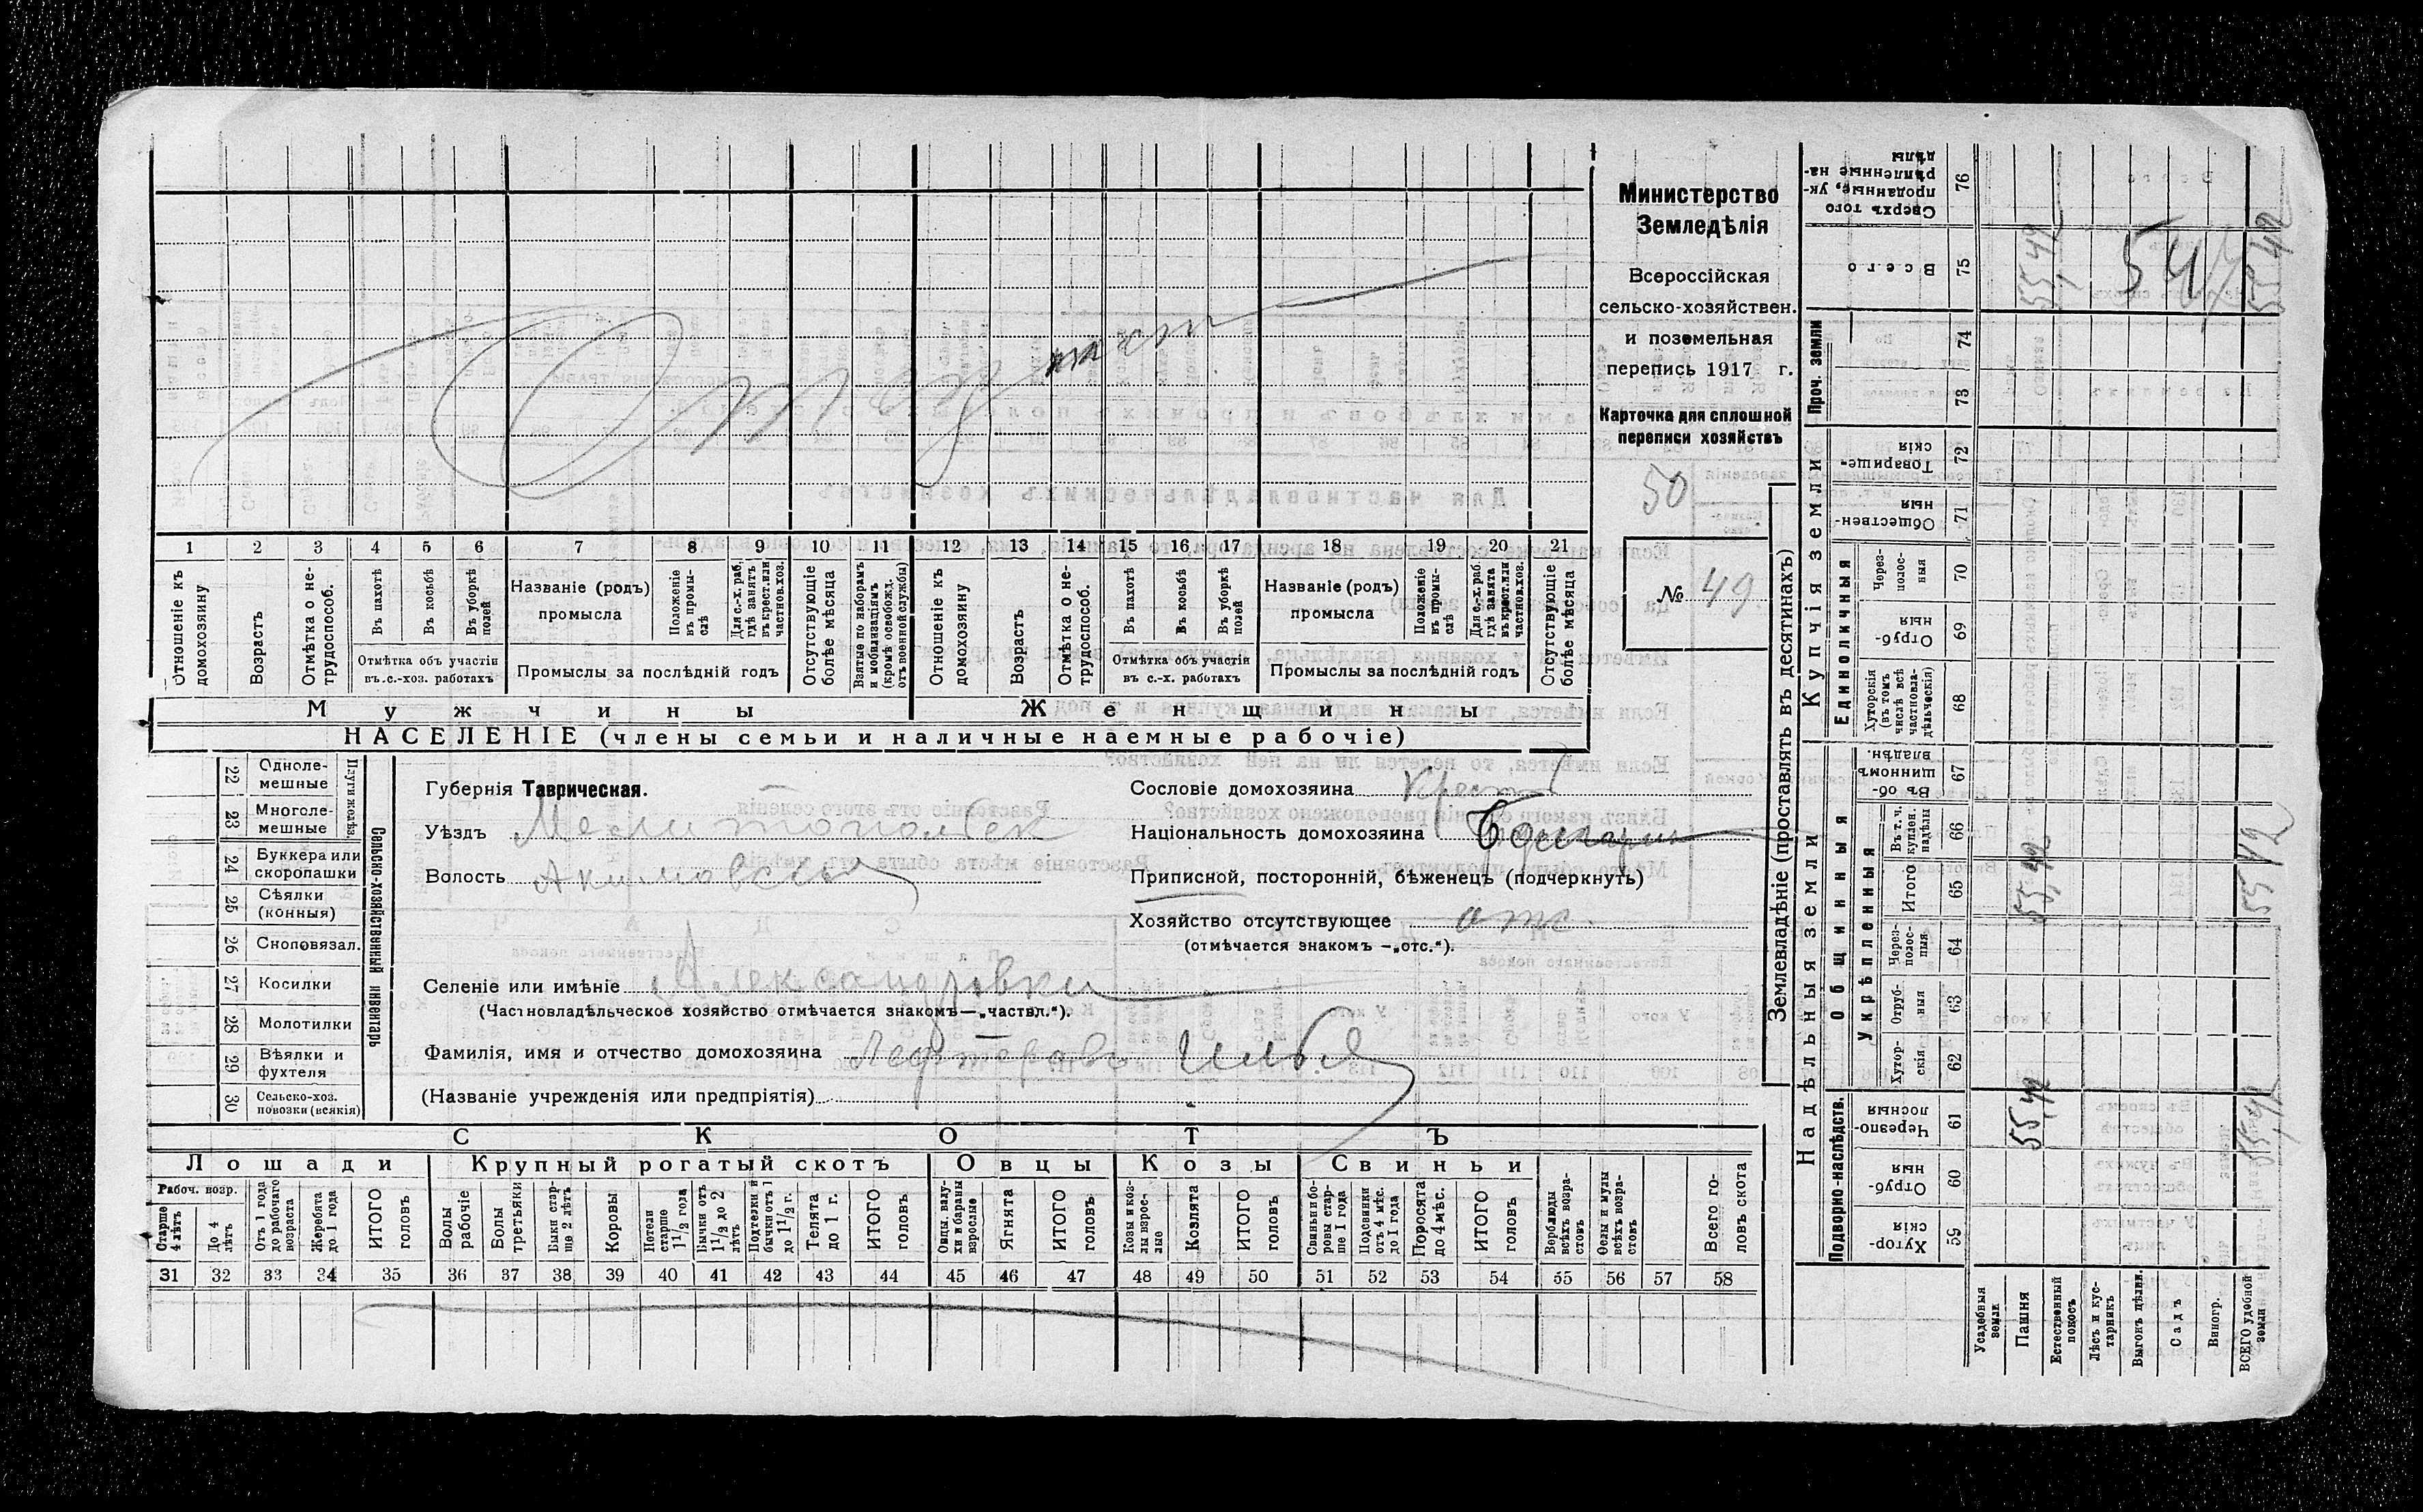 Министерство
Земледѣлія
Всероссійская
сельско-хозяйствен.
и поземельная
перепись 1917 г.
Карточка для сплошной
переписи хозяйствъ
50
№ 49
1 2 3 4 5 6 7 8 9 10 11 12 13 14 15 16 17 18 19 20 21
Отношеніе къ домохозяину
Возрастъ
Отмѣтка о нетрудоспособ.
Въ пахотѣ
Въ косьбѣ
Въ уборкѣ полей
Отмѣтка объ участіи
въ с.-хоз. работахъ
Названіе (родъ)
промысла
Положеніе въ промыслѣ
Для с.-х. раб. гдѣ занятъ въ крест. или частнов. хоз.
Промыслы за послѣдній годъ
Отсутствующіе болѣе мѣсяца
Взятые по наборамъ и мобилизаціямъ (кромѣ освобожд. отъ военной службы)
Отношеніе къ домохозяину
Возрастъ
Отмѣтка о нетрудоспособ.
Въ пахотѣ
Въ косьбѣ
Въ уборкѣ полей
Отмѣтка объ участіи
въ с.-х. работахъ
Названіе (родъ)
промысла
Положеніе въ промыслѣ
Для с.-х. раб. гдѣ занята въ крест. или частнов. хоз.
Промыслы за послѣдній годъ
Отсутствующіе болѣе мѣсяца
Мужчины Женщины
НАСЕЛЕНІЕ (члены семьи и наличные наемные рабочіе)
Сельско-хозяйственный инвентарь
22 Однолемешные
23 Многолемешные
24 Буккера или скоропашки
25 Сѣялки (конныя)
26 Сноповязал.
27 Косилки
28 Молотилки
29 Вѣялки и фухтеля
30 Сельско-хоз. повозки (всякія)
Губернія Таврическая.
Уѣздъ Мелитопольск
Волость Акимовская
Селеніе или имѣніе Александровка
(Частновладѣльческое хозяйство отмѣчается знакомъ—„частвл.“).
Фамилія, имя и отчество домохозяина Лефтеровъ Илья
(Названіе учрежденія или предпріятія)
Сословіе домохозяина Крест
Національность домохозяина Болгарин
Приписной, посторонній, бѣженецъ (подчеркнуть)
Хозяйство отсутствующее отс.
(отмѣчается знакомъ —„отс.“).
СКОТЪ
Лошади Крупный рогатый скотъ Овцы Козы Свиньи
Рабоч. возр.
Старше 4 лѣтъ
До 4 лѣтъ
Отъ 1 года до рабочаго возраста
Жеребята до 1 года
ИТОГО головъ
Волы рабочіе
Волы третьяки
Быки старше 2 лѣтъ
Коровы
Нетели старше 1 1/2 года
Бычки отъ 1 1/2 до 2 лѣтъ
Подтелки и бычки отъ 1 до 1 1/2 г.
Телята до 1 г.
ИТОГО головъ
Овцы, валухи и бараны взрослые
Ягнята
ИТОГО головъ
Козы и козлы взрослые
Козлята
ИТОГО головъ
Свиньи и боровы старше 1 года
Подсвинки отъ 4 мѣс. до 1 года
Поросята до 4 мѣс.
ИТОГО головъ
Верблюды всѣхъ возрастовъ
Ослы и мулы всѣхъ возрастовъ
Всего головъ скота
31 32 33 34 35 36 37 38 39 40 41 42 43 44 45 46 47 48 49 50 51 52 53 54 55 56 57 58
Землевладѣніе (проставлять въ десятинахъ)
Надѣльныя земли
Купчія земли
Проч. земли
Сверхъ того проданные, укрѣпленные надѣлы 76
Всего 75 55,42 54 55 42
74
73
Товарищескія 72
Общественныя 71
Единоличныя
Черезполосныя 70
Отрубныя 69
Хуторскія (въ томъ числѣ всѣ частновладѣльческія) 68
Общинныя
Въ общинномъ владѣн. 67
Укрѣпленныя
Въ т. ч. куплен. надѣлы 66
Итого 65 55,42 55 42
Черезполосныя 64
Отрубныя 63
Хуторскія 62
Подворно-наслѣдств.
Черезполосныя 61 55,42 55,42
Отрубныя 60
Хуторскія 59
Усадебныя земли
Пашня
Естественный покосъ
Лѣсъ и кустарникъ
Выгонъ цѣлин.
Садъ
Виногр.
ВСЕГО удобной земли